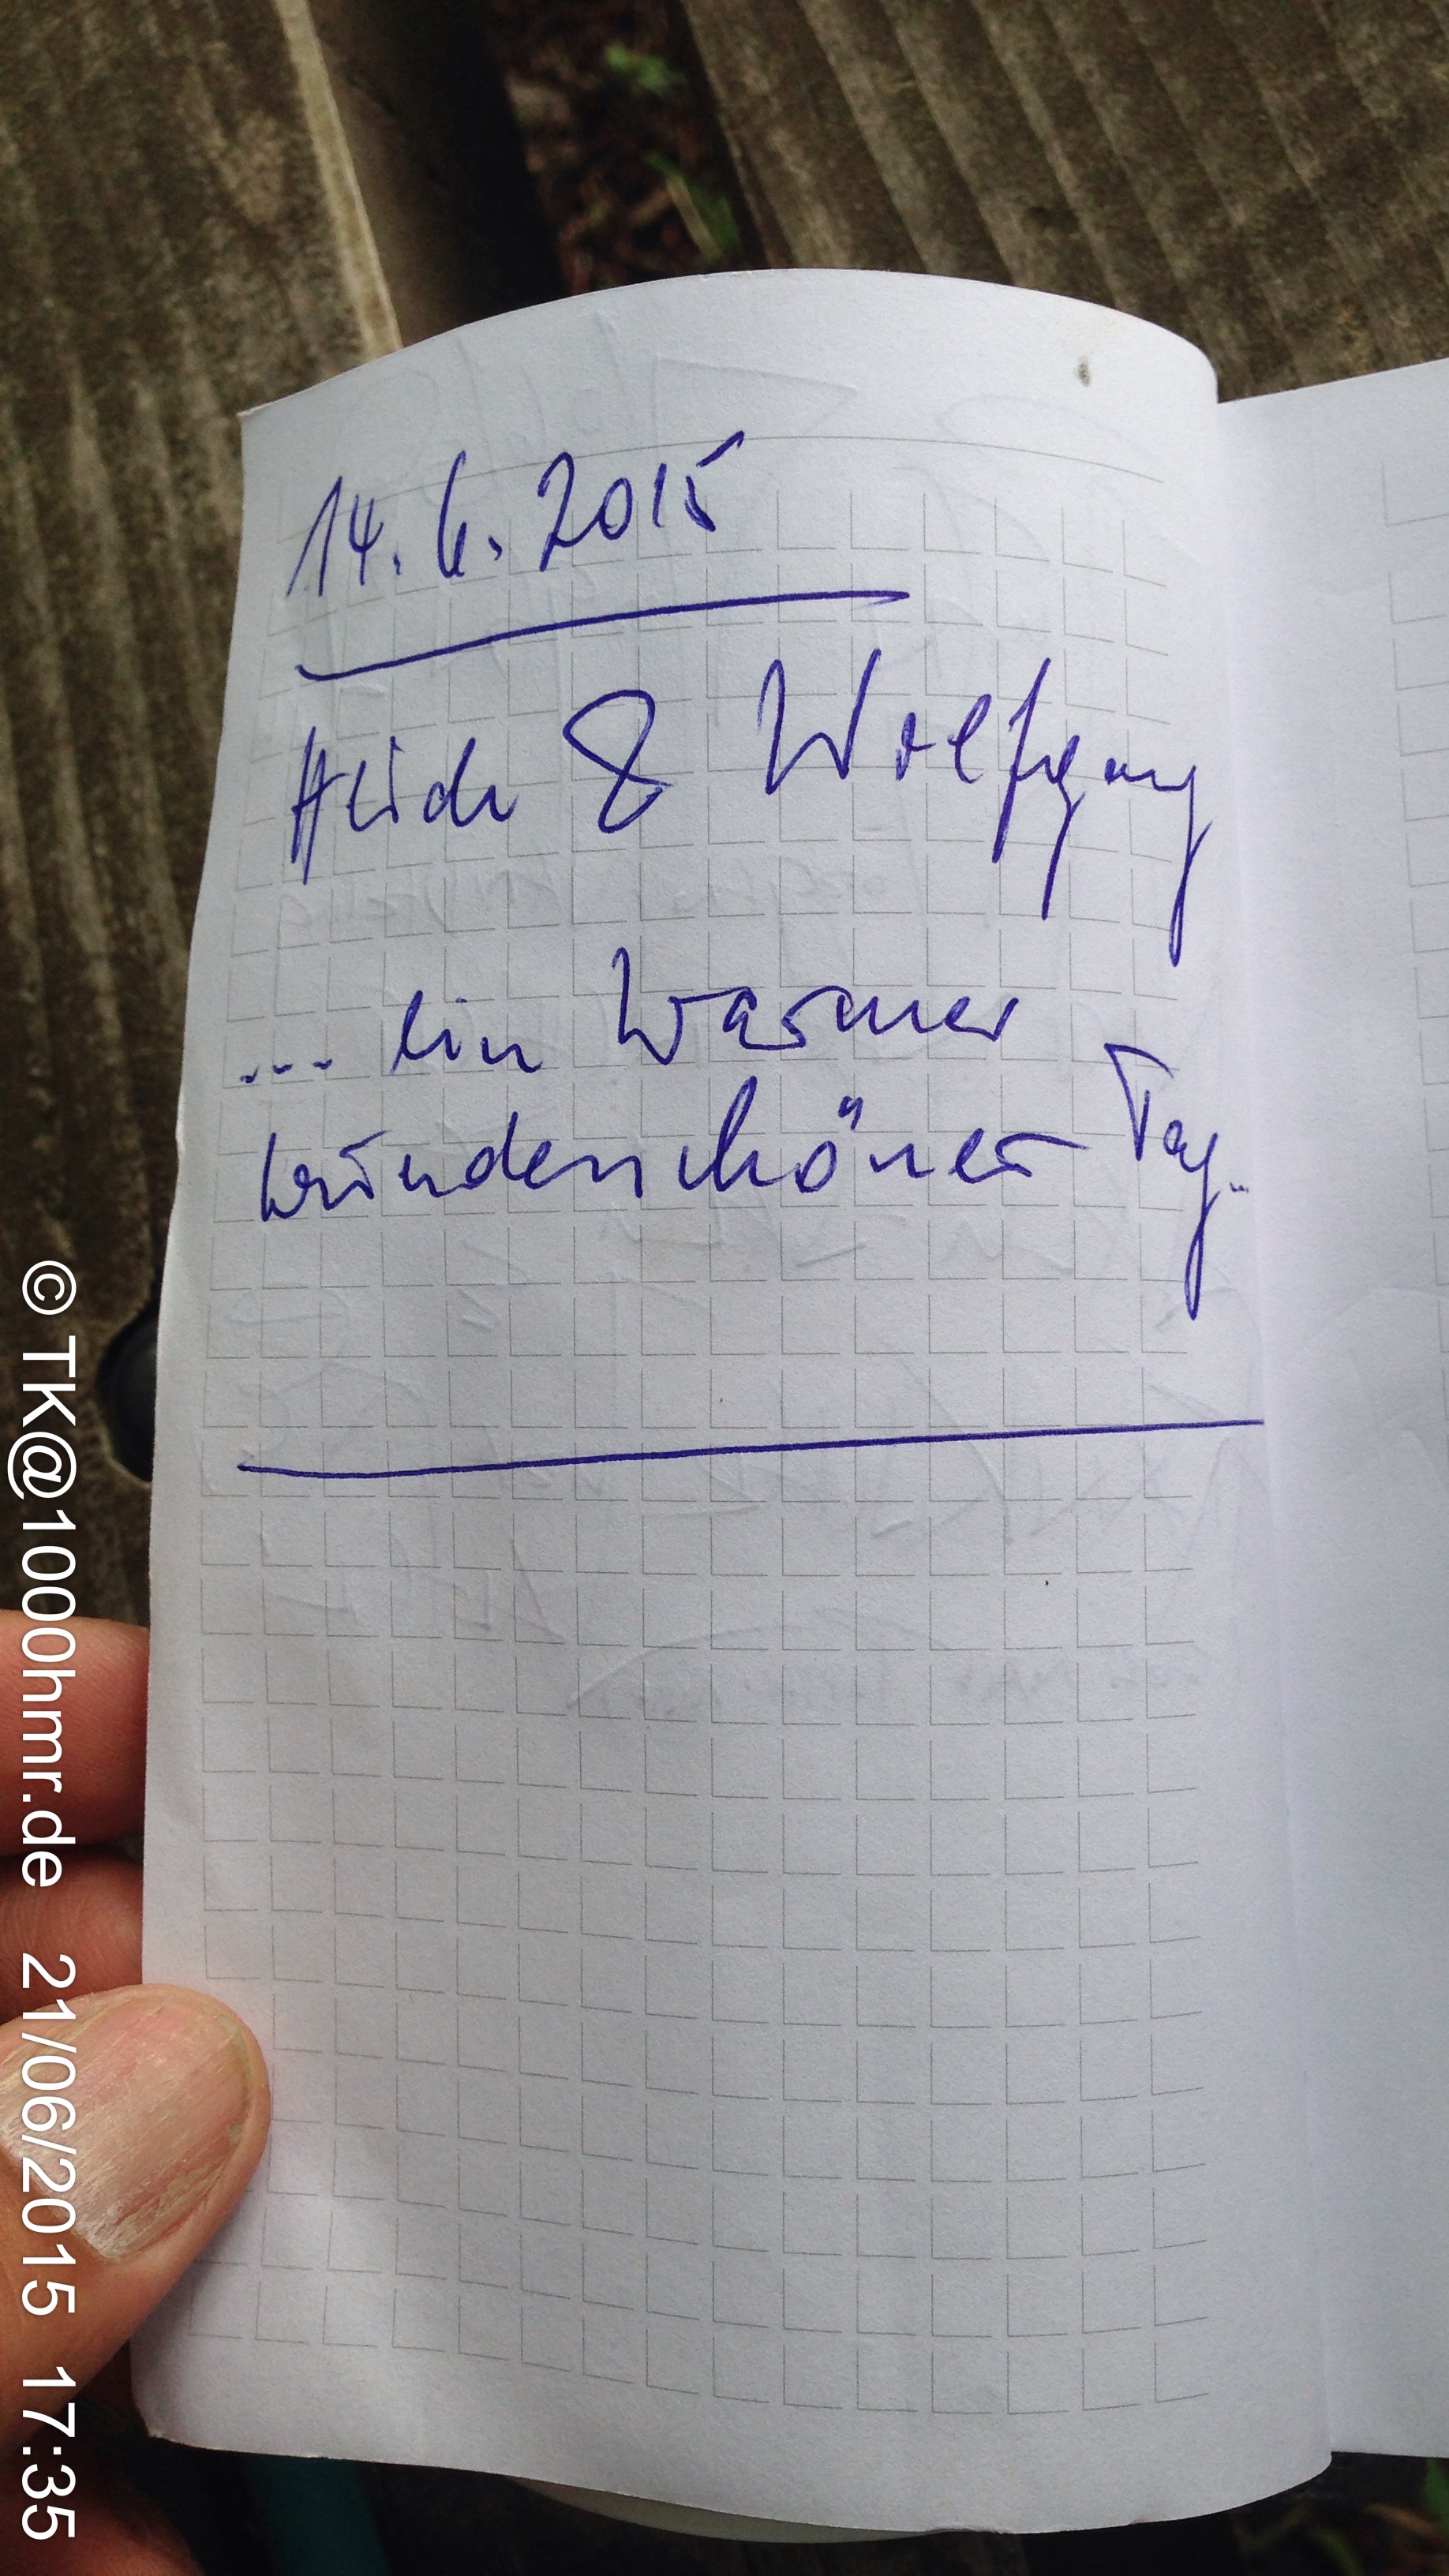 14.6.2015
Heide & Wolfgang
... ein warmer
wunderschöner Tag..
© TK@1000hmr.de 21/06/2015 17:35